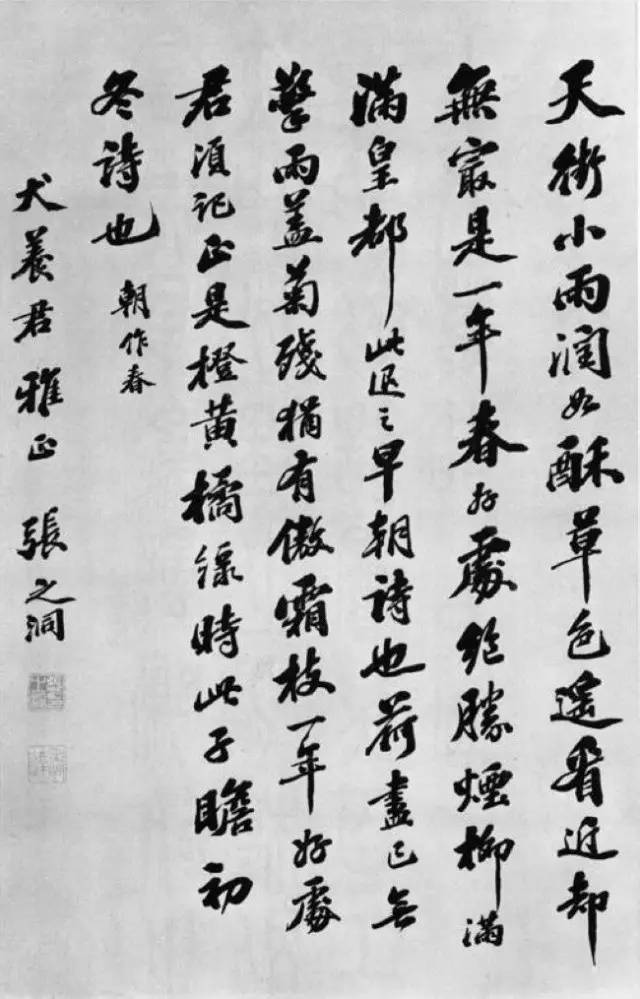 天街小雨潤如酥草色遙看近却
無㝡是一年春好處絶勝煙柳滿
滿皇都此退之早朝詩也荷盡已無
擎雨蓋菊殘猶有傲霜枝一年好處
君須記正是橙黃橘綠時此子瞻初
冬詩也
朝作春
犬養君雅正 張之洞